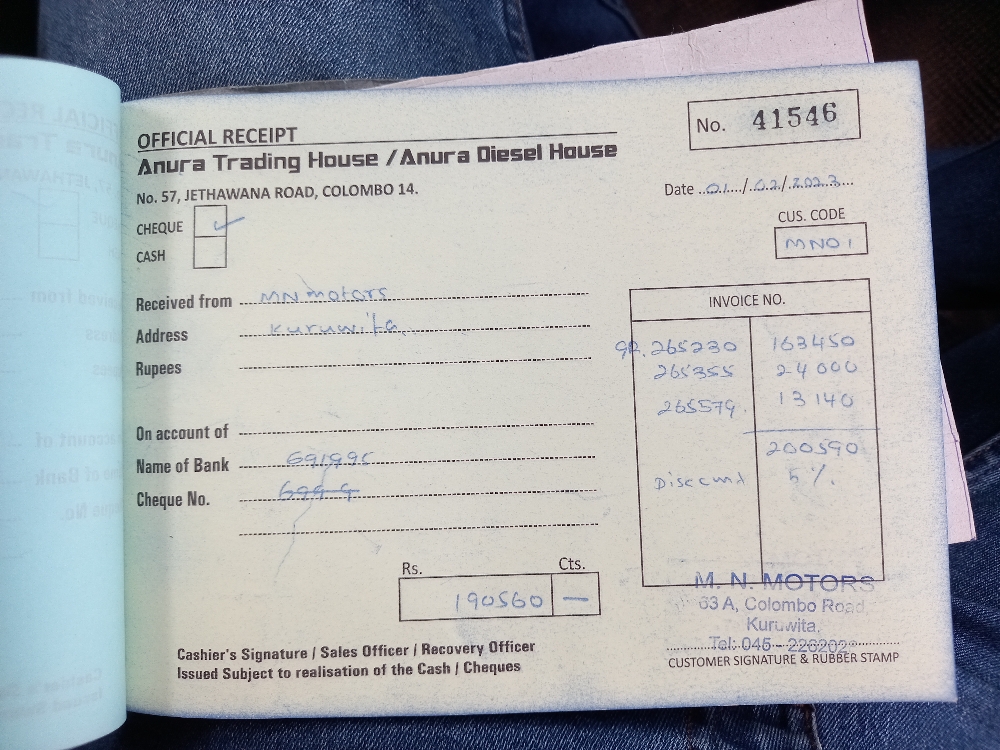 OFFICIAL RECEIPT
No. 41546
Anura Trading House / Anura Diesel House
No. 57, JETHAWANA ROAD, COLOMBO 14.
Date ..01..../..02../..2023...
CHEQUE ✓
CUS. CODE
CASH
MN01
Received from MN motors
INVOICE NO.
Address Kuruwita
Rupees
265230 163450
265355 24000
265579. 13140
On account of
200590
Name of Bank 691995
Discount 5%.
Cheque No.
Rs. Cts.
190560 —
M. N. MOTORS
63 A, Colombo Road,
Kuruwita.
Cashier's Signature / Sales Officer / Recovery Officer
Tel: 045 - 226202
Issued Subject to realisation of the Cash / Cheques
CUSTOMER SIGNATURE & RUBBER STAMP